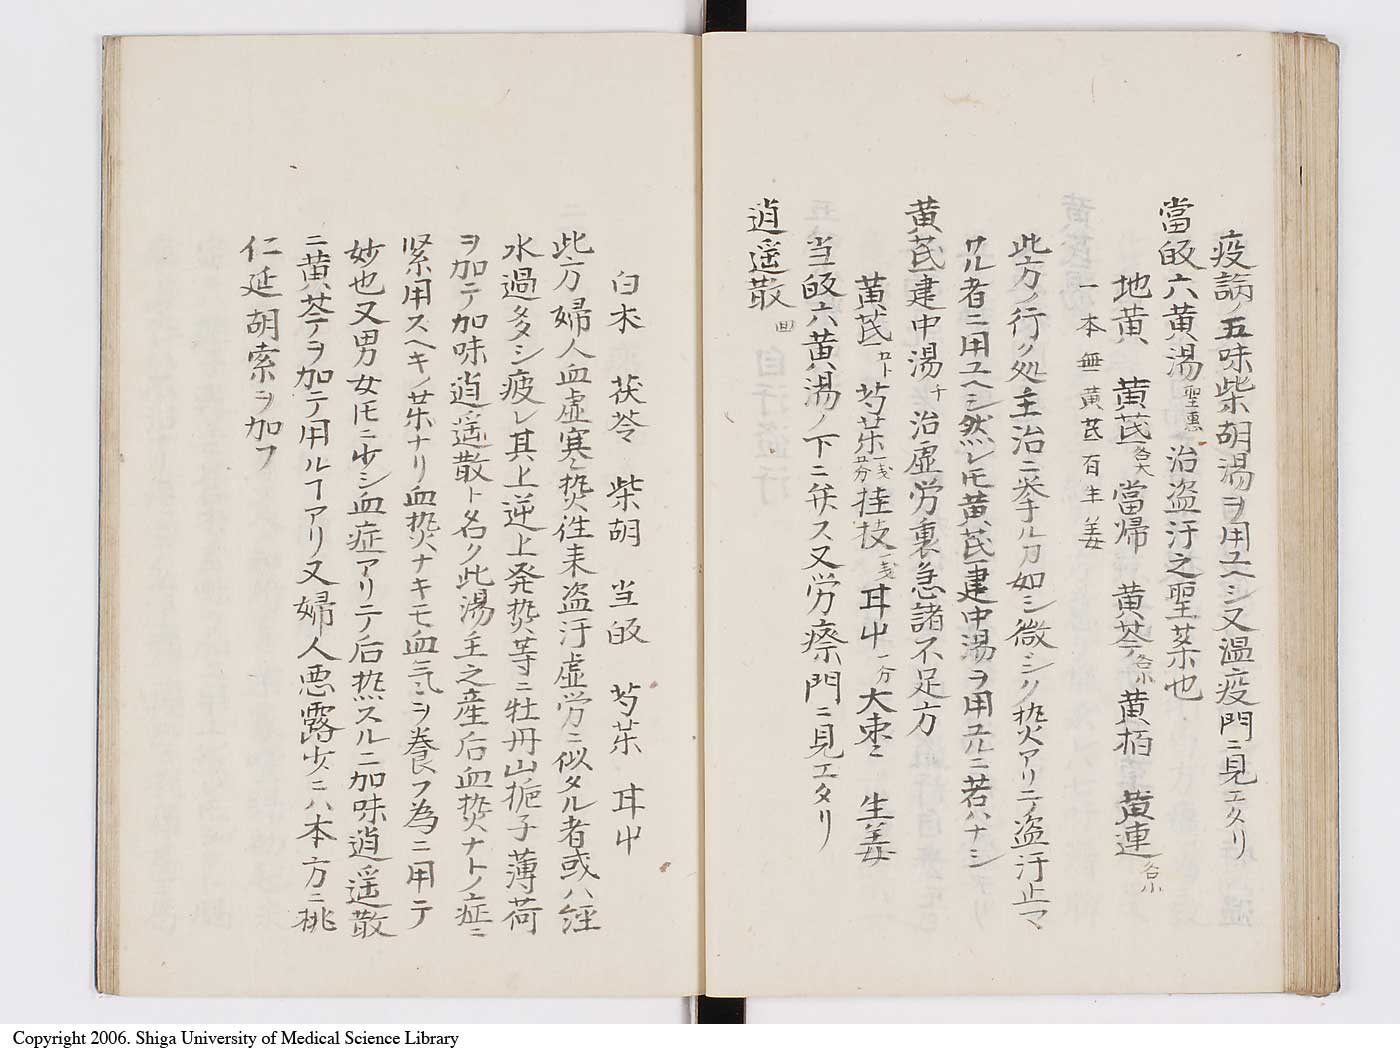 疫論ノ五味柴胡湯ヲ用ユヘシ又温疫門ニ見エタリ
當皈六黄湯 聖惠 治盗汗之聖薬也
地黄 黄芪 各大 當帰 黄芩 各小 黄柏 黄連 各小
一本無黄芪百生姜
此方ノ行ク処主治ニ挙ル刀如シ微シク熱火アリテ盗汗止マ
サル者ニ用ユヘシ然レ𪜈黄芪建中湯ヲ用ユルニ若ハナシ
黄芪建中湯 千 治虚労裏急諸不足方
黄芪 芍薬 一戔五分 桂枝 一戔 耳屮 一分 大棗 生姜
当皈六黄湯ノ下ニ弁ス又労瘵門ニ見エタリ
逍遥散 田
白朮 茯苓 柴胡 当皈 芍薬 耳屮
此方婦人血虚寒熱往来盗汗虚労ニ似タル者或ハ経
水過多シ疲レ其上逆上発熱等ニ牡丹山梔子薄荷
ヲ加テ加味逍遥散ト名ク此湯主之産后血熱ナトノ症ニ
緊用スヘキノ薬ナリ血熱ナキモ血気ヲ養フ為ニ用テ
妙也又男女𪜈ニ少シ血症アリテ后熱スルニ加味逍遥散
ニ黄芩ヲ加テ用ルヿアリ又婦人悪露少ニハ本方ニ桃
仁延胡索ヲ加フ
Copyright 2006. Shiga University of Medical Science Library